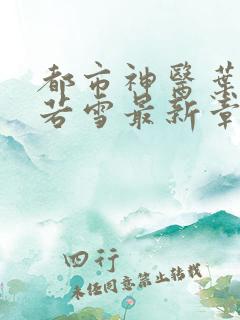 都市神醫葉
若雪最新章
四行
未经同意禁止转载